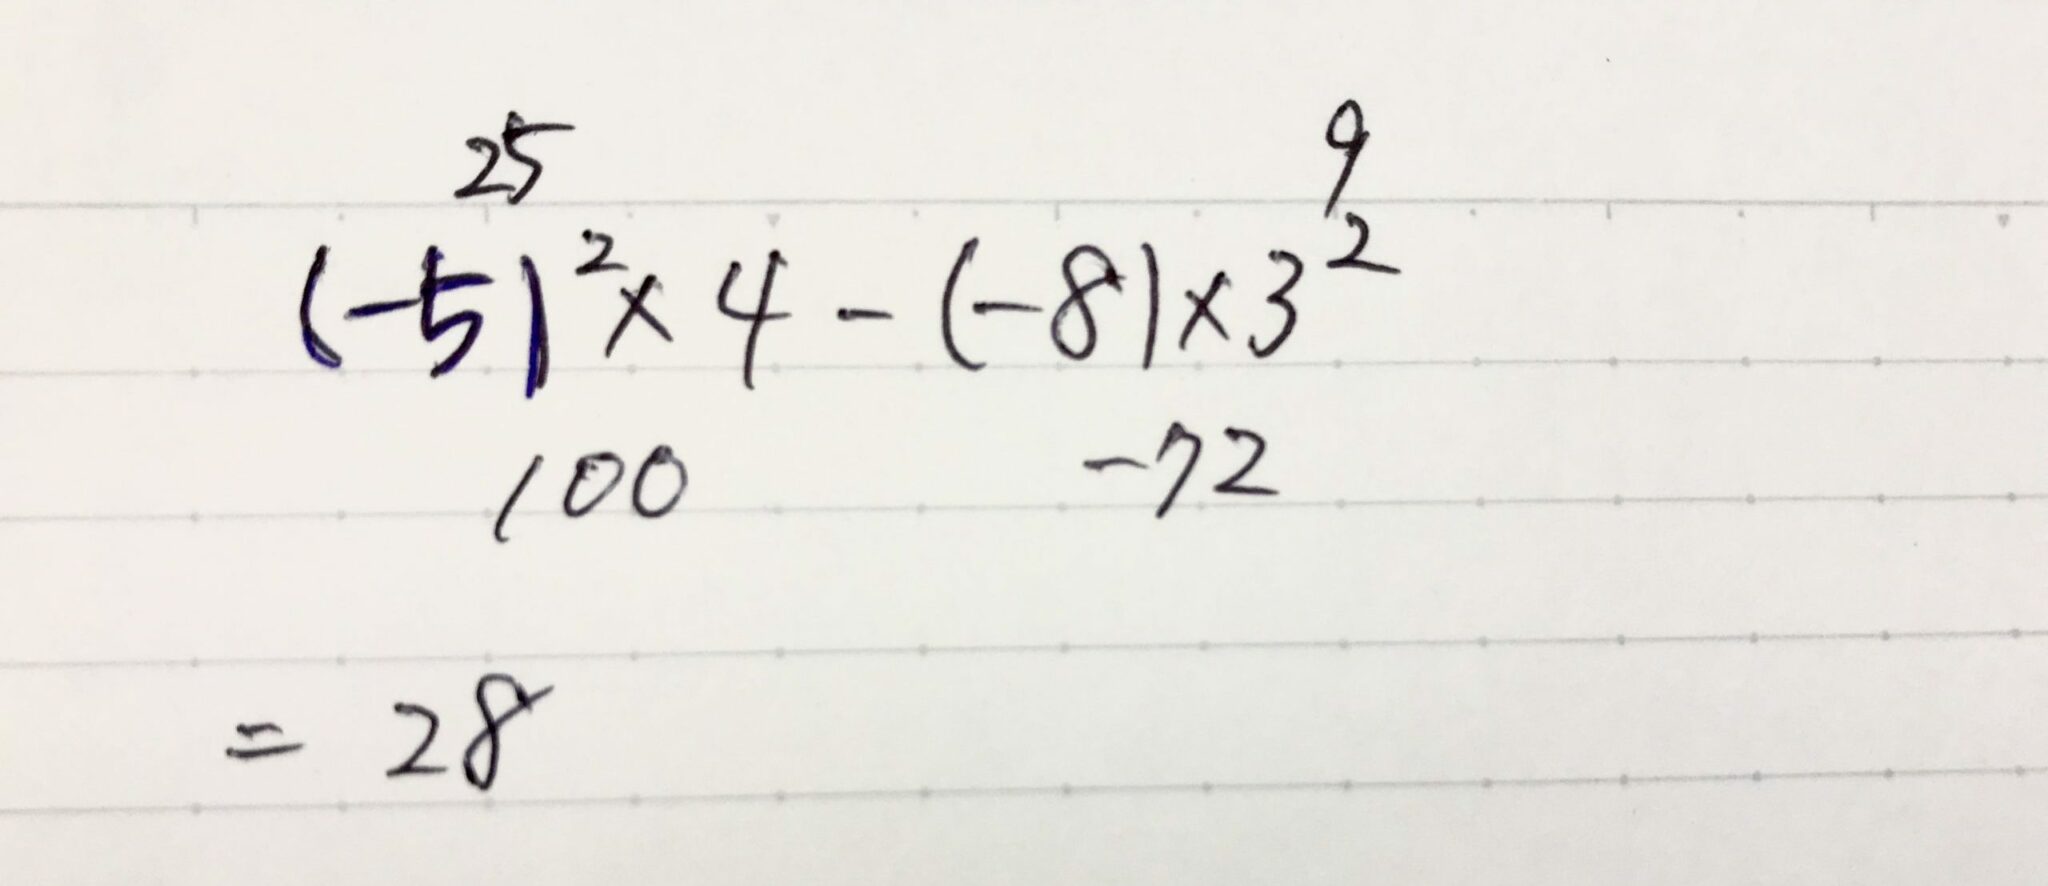 25 9
(-5)² × 4 - (-8) × 3²
100 -72
= 28